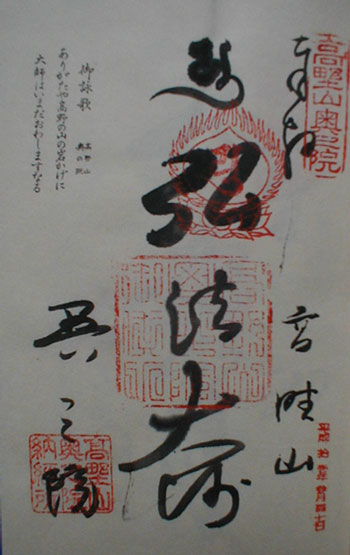 高野山奥之院
奉拝
高野山
弘法大師
奥之院
高野山
奥之院
納経所
御詠歌
高野山
奥の院
ありがたや高野の山の岩かげに
大師はいまだおわしますなる